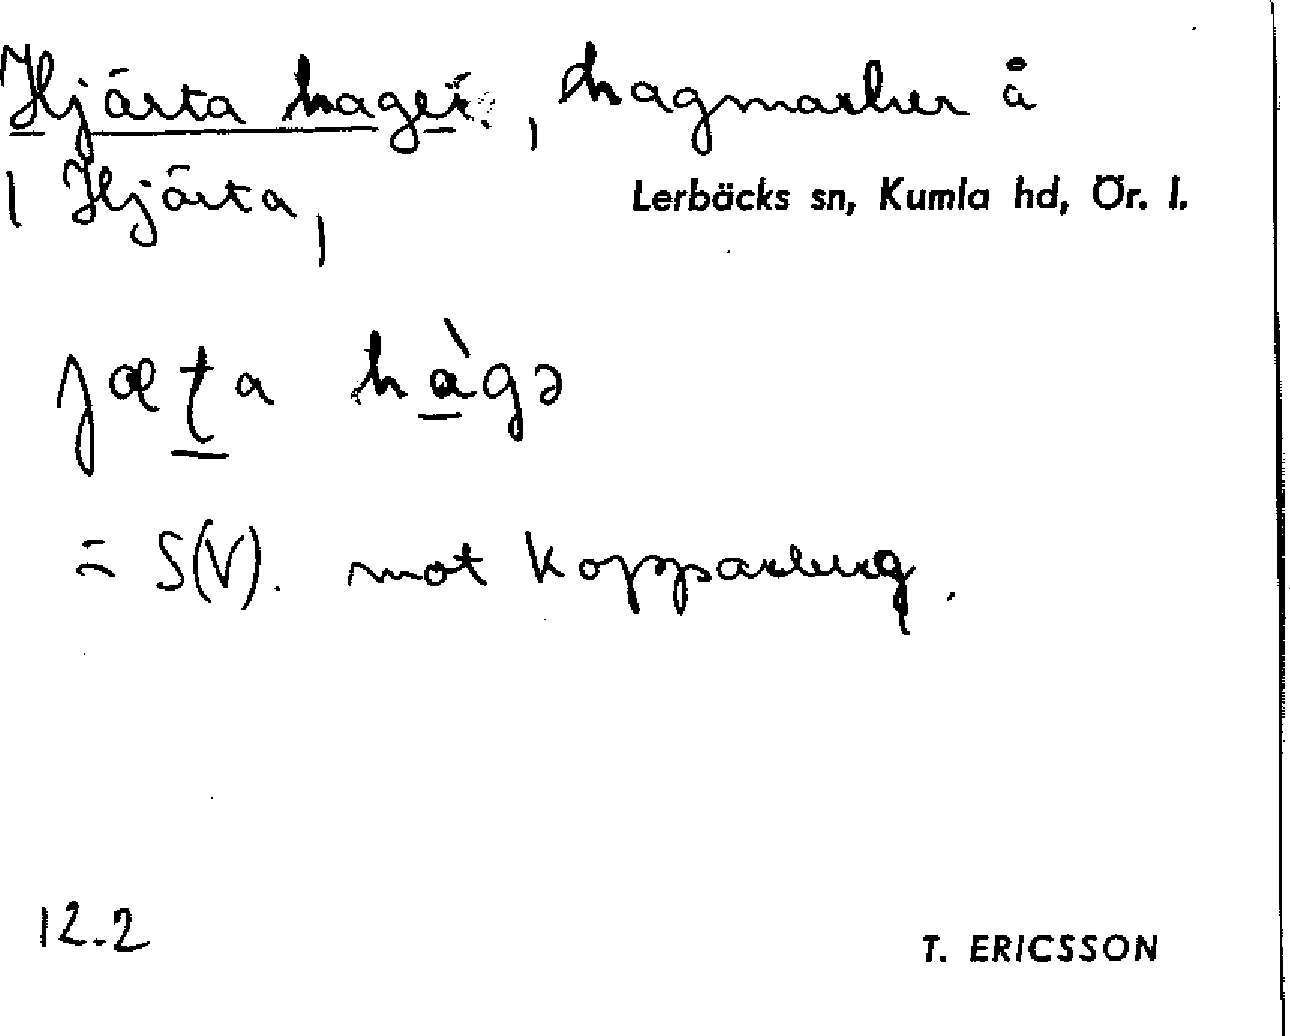 Hjärta hage, hagmarker å
1 Hjärta,
Lerbäcks sn, Kumla hd, Ör. l.
jæʈa hàgə
= S(V). mot Kopparberg.
12.2
T. ERICSSON